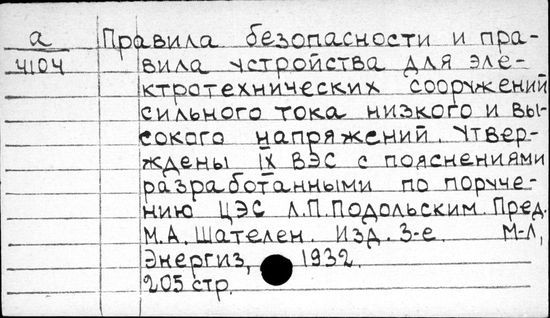 а Правила безопасности и пра-
4104 вила устройства для эле-
ктротехнических сооружений
сильного тока низкого и вы-
сокого напряжений. Утвер-
ждены IX ВЭС с пояснениями
разработанными по поруче-
нию ЦЭС Л.П.Подольским. Пред.
М.А. Шателен. Изд. 3-е. М-Л,
Энергиз, 1932.
205 стр.